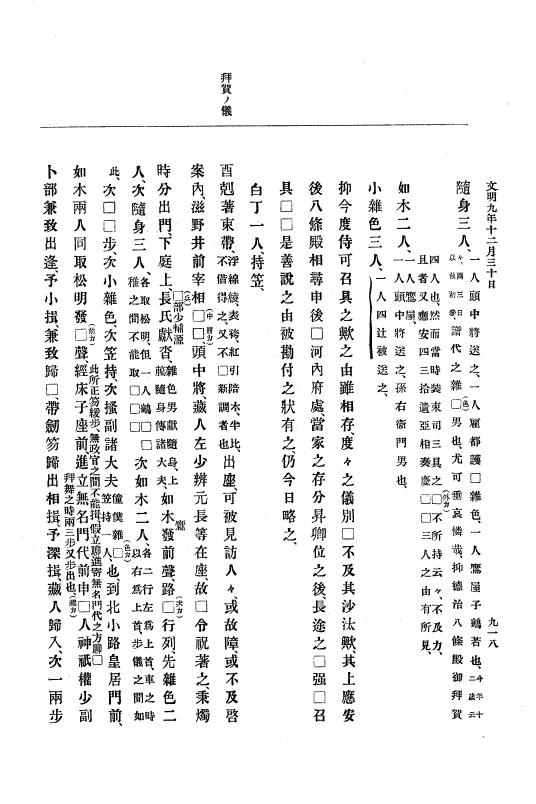 文明九年十二月三十日
九一八
拜賀ノ儀
隨身三人、一人頭中將送之、一人雇都護□雜色、一人鷹屋子鶴若也、今年十二歲云々、兩三日以前初參、譜代之雜□(色)男也、尤可垂哀憐哉、抑德治八條殿御拜賀
四人也、然而當時裝束司三具之□(外カ)不所持云々、不及力、
且者又應安四三拾遺亞相奏慶□□三人之由有所見、
如木二人、一人鷹屋、一人頭中將送之、孫右衞門男也、
小雜色三人、一人四辻被送之、
抑今度侍可召具之歟之由雖相存、度々之儀別□不及其沙汰歟、其上應安
後八條殿相尋申後□河內府處、當家之存分昇卿位之後、長途之□强□召
具□□是善說之由被勘付之狀有之、仍今日略之、
白丁一人、持笠、
酉剋著束帶、浮線綾、表袴、紅引陪木、牛比、不借得之、又不□新調者也、出座可被見訪人々、或故障或不及啓
案內、滋野井前宰相□□(中將カ)頭中將、藏人左少辨元長等在座、故□分祝著之、秉燭
時分出門、下庭上、長氏獻沓、□部少輔源雜色男獻隨身、上﨟隨身傳諸大夫、如木發前聲路□(大カ)行列、先雜色二
人、次隨身三人、各取松明、但一人鶴□□雅之間不能取□□次如木二人、各二行左爲上首、車之時以右爲上首、步儀之間如
此、次□□步、次小雜色、次笠持、次搔副諸大夫僮僕雜□(色カ)笠持一人、也、到北小路皇居門前、
如木兩人同取松明發□(前カ)聲、經床子座前、進立無名門代前、此所正笏緩步、無政官之間不能揖、假立聊進寄無名門代之方聊□申□人神祇權少副
卜部兼致出逢、予小揖、兼致歸□、帶劒笏歸出相揖、拜舞之時兩三步又步出也、(繼カ)予深揖、藏人歸入、次一兩步